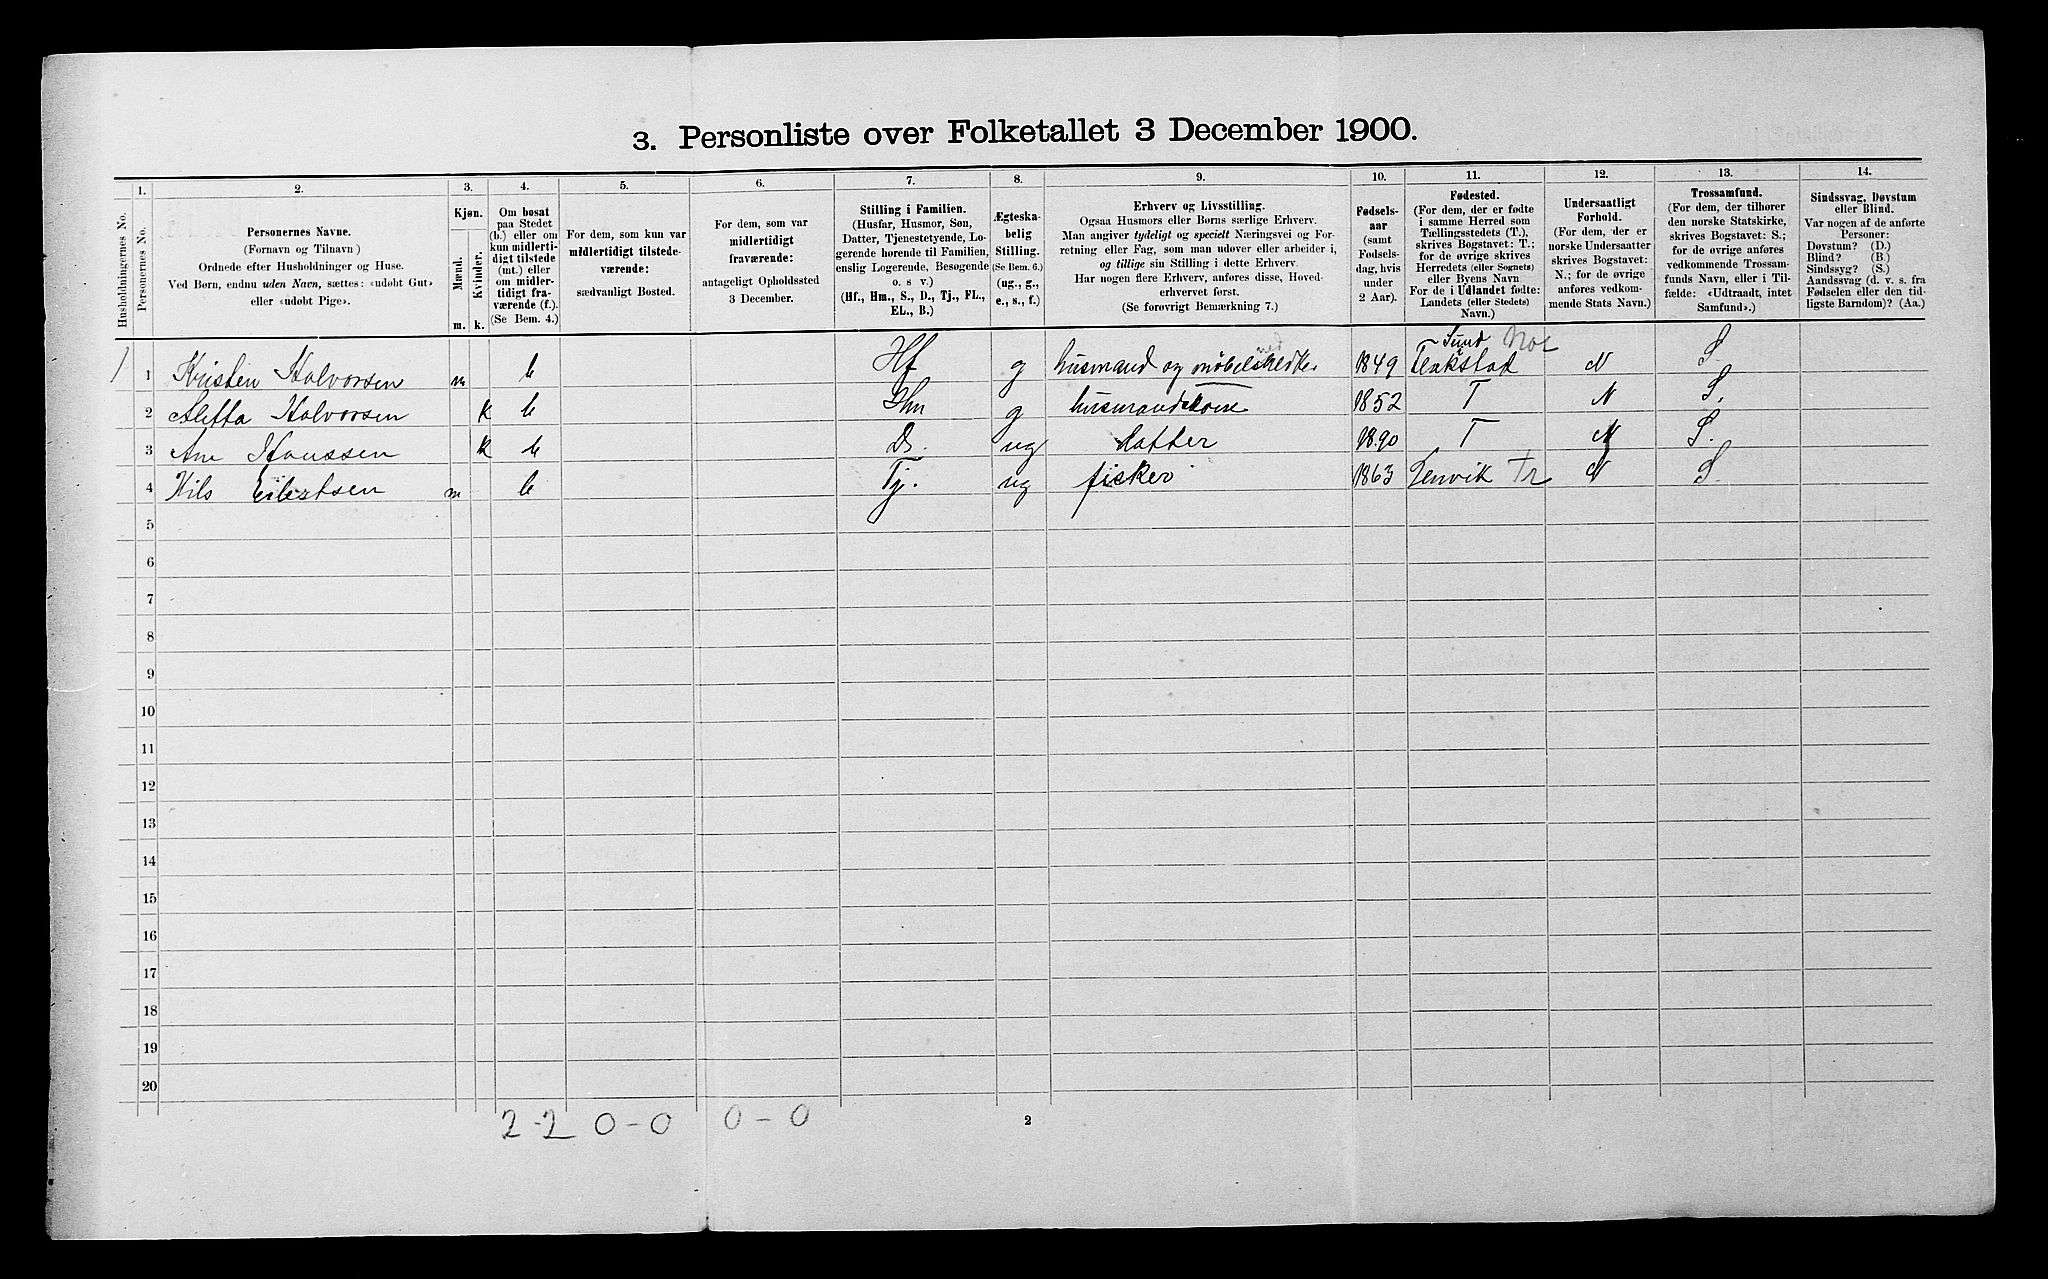 3. Personliste over Folketallet 3 December 1900.
1. 2. 3. 4. 5. 6. 7. 8. 9. 10. 11. 12. 13. 14.
Husholdningernes No.
Personernes No.
Personernes Navne.
(Fornavn og Tilnavn)
Ordnede efter Husholdninger og Huse.
Ved Børn, endnu uden Navn, sættes: «udøbt Gut»
eller «udøbt Pige».
Kjøn.
Mænd.
Kvinder.
m. k.
Om bosat
paa Stedet
(b.) eller om
kun midlerti-
digt tilstede
(mt.) eller
om midler-
tidigt fra-
værende (f.).
(Se Bem. 4.)
For dem, som kun var
midlertidigt tilstede-
værende:
sædvanligt Bosted.
For dem, som var
midlertidigt
fraværende:
antageligt Opholdssted
3 December.
Stilling i Familien.
(Husfar, Husmor, Søn,
Datter, Tjenestetyende, Lo-
gerende hørende til Familien,
enslig Logerende, Besøgende
o. s v.)
(Hf., Hm., S., D., Tj., FL.,
EL., B.)
Ægteska-
belig
Stilling.
(Se Bem. 6.)
(ug., g.,
e., s., f.)
Erhverv og Livsstilling.
Ogsaa Husmors eller Børns særlige Erhverv.
Man angiver tydeligt og specielt Næringsvei og For-
retning eller Fag, som man udøver eller arbeider i,
og tillige sin Stilling i dette Erhverv.
Har nogen flere Erhverv, anføres disse, Hoved-
erhvervet først.
(Se forøvrigt Bemærkning 7.)
Fødsels-
aar
(samt
Fødsels-
dag, hvis
under
2 Aar).
Fødested.
(For dem, der er fødte
i samme Herred som
Tællingsstedets (T.),
skrives Bogstavet: T.;
for de øvrige skrives
Herredets (eller Sognets)
eller Byens Navn
For de i Udlandet fødte:
Landets (eller Stedets)
Navn.)
Undersaatligt
Forhold.
(For dem, der er
norske Undersaatter
skrives Bogstavet:
N.; for de øvrige
anføres vedkom-
mende Stats Navn.)
Trossamfund.
(For dem, der tilhører
den norske Statskirke,
skrives Bogstavet: S.;
for de øvrige anføres
vedkommende Trossam-
funds Navn, eller i Til-
fælde: «Udtraadt, intet
Samfund».)
Sindssvag, Døvstum
eller Blind.
Var nogen af de anførte
Personer:
Døvstum? (D.)
Blind? (B.)
Sindssyg? (S.)
Aandssvag (d. v. s. fra
Fødselen eller den tid-
ligste Barndom)? (Aa.)
Sund Nor
1 1 Kristen Halvorsen m b Hf g husmand og 1849 Flakstad N S.
2 Aletta Halvorsen k b Hm g husmandskone 1852 T N S.
3 Ane Hanssen k b D. ug datter 1890 T N S.
4 Nils Eilertsen m b Tj. ug fisker 1863 Lenvik Tr N S.
5
6
7
8
9
10
11
12
13
14
15
16
17
18
19
20
2-2 0-0 0-0
2